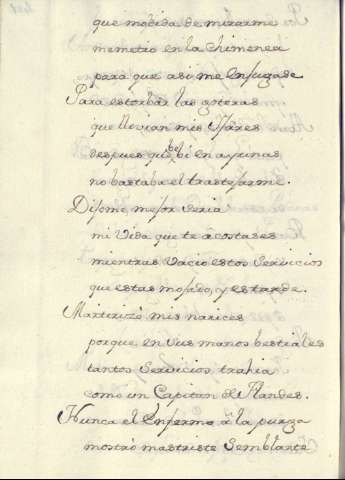 que movida de mirarme
memetio en la chimenea
para que asi me enjugase
Para estorbar las goteras
que llovian mis
despues que bebi en ayunas
no bastaba el trastejarme.
Dijome mejor seria
mi vida que te acostases
mientras vacio estos servicios
que estas mojado, y es tarde.
Martirizò mis narices
porque en sus manos bestiales
tantos servicios trahia
como un Capitan de Flandes.
Nunca el enfermo à la purga
mostrò mas triste semblante